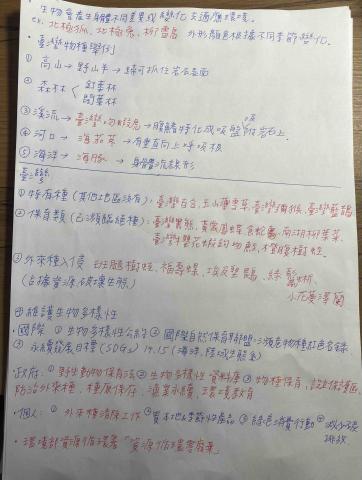 生物會產生身體不同差異或變化去適應環境。
ex. 北極狐、北極兔、柳雷鳥 外形顏色根據不同季節變化。
• 臺灣物種舉例
① 高山→野山羊→蹄可抓住岩石表面
② 森林＜針葉林
闊葉林
③ 溪流→臺灣間爬岩鰍→腹鰭特化成吸盤吸附岩石上。
④ 河口→海茄苳→有垂直向上呼吸根
⑤ 海洋→海豚→身體流線形
臺灣
① 特有種（其他地區沒有）：臺灣百合、玉山薄雪草、臺灣獼猴、臺灣藍鵲
② 保育類（已瀕臨絕種）：臺灣黑熊、黃裳鳳蝶、食蛇龜、南湖柳葉菜、
臺灣
③ 外來種入侵 斑腿樹蛙、福壽螺、埃及聖䴉、綠鬣蜥、
（占據資源、破壞生態） 小花蔓澤蘭
四 維護生物多樣性
• 國際 ① 生物多樣性公約 ② 國際自然保育聯盟：瀕危物種紅色名錄
③ 永續發展目標（SDGs）14.15（海洋、陸域生態系）
• 政府 ① 野生動物保育法 ② 生物多樣性資料庫 ③ 物種保育、設立保護區、
防治外來種、種原保存、漁業永續、環境教育
• 個人：① 外來種清除工作 ② 買本地當季的產品 ③ 綠色消費行動 ④ 減少碳
排放
• 環境部資源循環署「資源循環零廢棄」